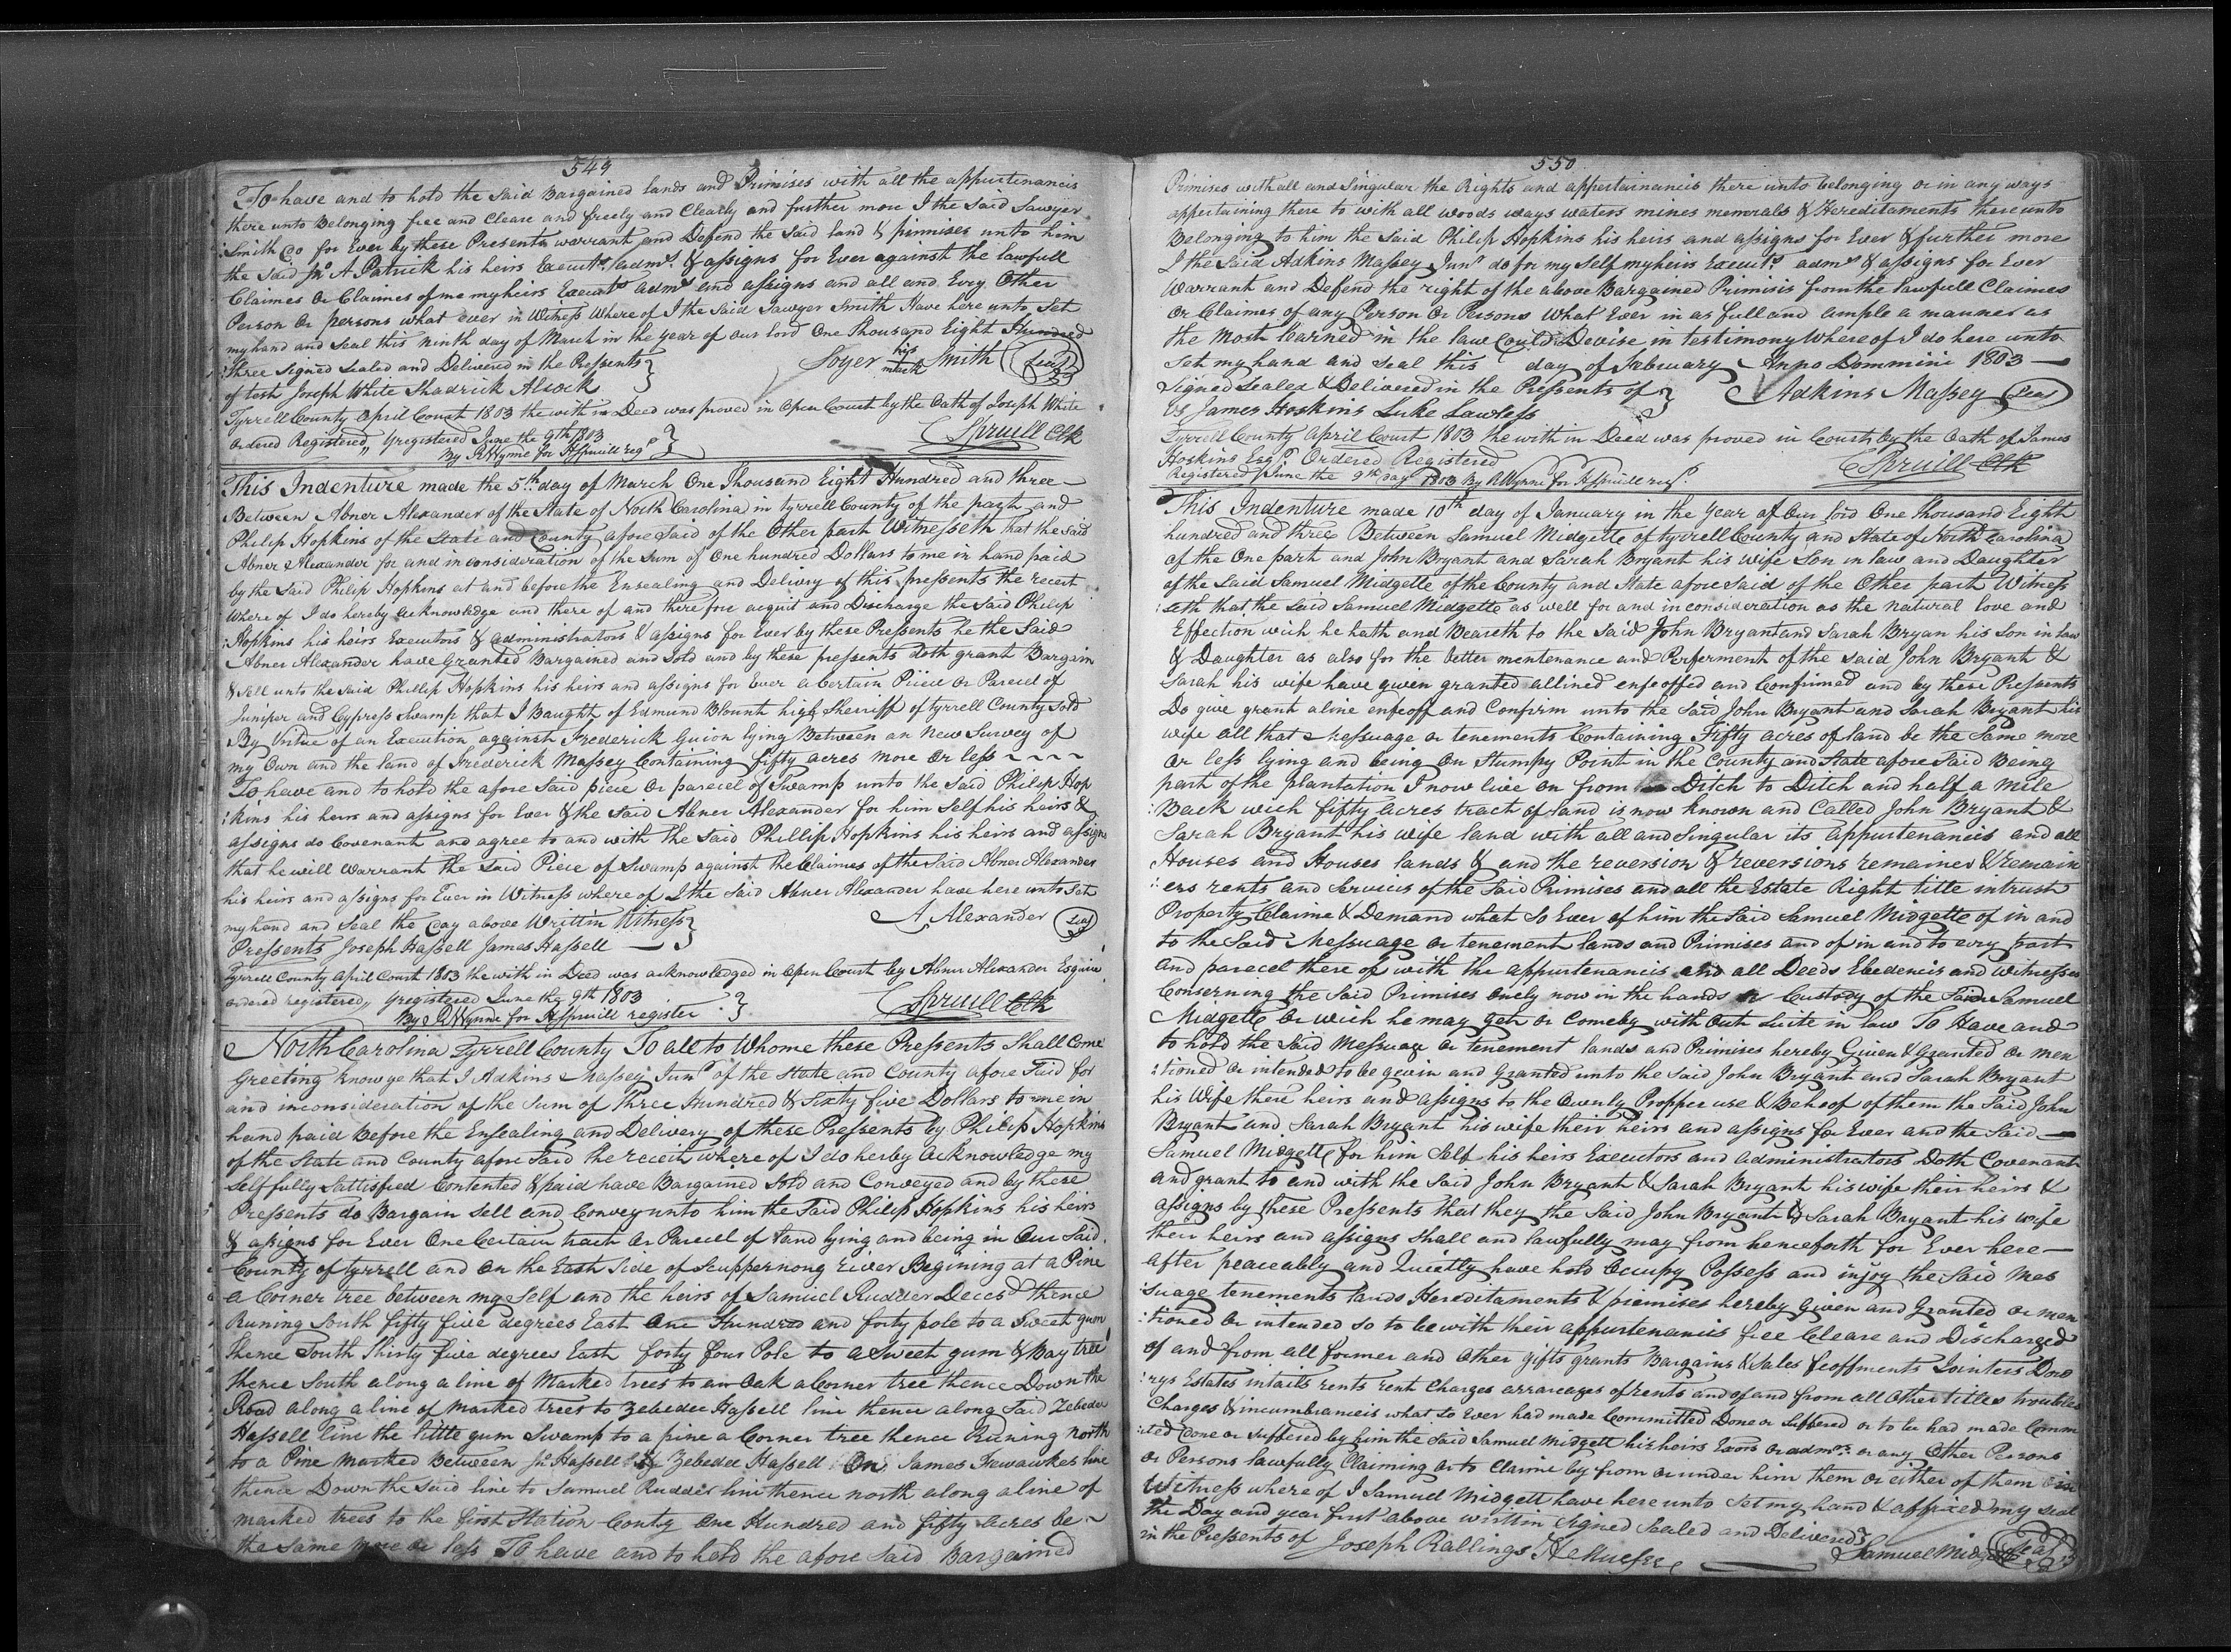 549
To have and to hold the said Bargained lands and Primises with all the appurtenancis
there unto Belonging free and Cleare and freely and Clearly and further more I the said Sawyer
Smith Co for Ever by these Presents warrant and Defend the said land & primises unto him
the said Jno A Patrick his heirs Executs. adms. & assigns for Ever against the Lawfull
Claimes Or Claimes of me my heirs Executs adms and assigns and all and Evry Other
Person Or persons what ever in Witness Where of I the Said Sawyer Smith Have here unto Set
my hand and Seal this ninth day of March in the year of our lord One Thousand Eight Hundred
& three Signed Sealed and Delivered in the Pressents
of test Joseph White Shadrick Alcock
Soyer his mark Smith Seal
Tyrrell County April Court 1803 the with in Deed was proved in open Court by the Oath of Joseph White
Ordered Registered, registered June the 9th 1803
By R Wynne for H Spruill reg
C Spruill Clk
This Indenture made the 5th day of March One Thousand Eight Hundred and three
Between Abner Alexander of the State of North Carolina in tyrrell County of the part and
Philip Hopkins of the State and County afore Said of the Other part Witnesseth that the Said
Abner Alexander for and in consideration of the Sum of One hundred Dollars to me in hand paid
by the Said Philip Hopkins at and before the Ensealing and Delivery of this pressents the receit
Where of I do hereby acknowledge and there of and therefore acquit and Discharge the Said Philip
Hopkins his heirs Executors & administrators & assigns for Ever by these Pressents he the Said
Abner Alexander have Granted Bargained and Sold and by these pressents doth grant Bargain
& Sell unto the said Phillip Hopkins his heirs and assigns for Ever a Certain Piece Or Parecel of
Juniper and Cypress Swamp that I Baught of Edmund Blount high Sherriff of tyrrell County Sold
By Virtue of an Execution against Frederick Guion lying Between an New Survey of
my Own and the land of Frederick Massey Containing fifty acres more Or less
To have and to hold the afore Said piece Or parecel of Swamp unto the Said Philip Hop
:kins his heirs and assigns for Ever & the Said Abner Alexander for him Self his heirs &
assigns do Covenant and agree to and with the Said Phillip Hopkins his heirs and assigns
that he will warrant the Said Piece of Swamp against the Claimes of the Said Abner Alexander
his heirs and assigns for Ever in Witness where of I the Said Abner Alexander have here unto Set
my hand and Seal the Day above Writtin Witness
Pressents Joseph Hassell James Hassell
A Alexander Seal
Tyrrell County April Court 1803 the with in Deed was acknowledged in Open Court by Abner Alexander Esquire
ordered registered, registered June the 9th 1803
By R Wynne for H Spruill register
C Spruill Clk
North Carolina Tyrrell County To all to Whome these Pressents Shall Come
Greeting know ye that I Adkins Massey Junr of the State and County afore Said for
and in consideration of the Sum of three Hundred & Sixty five Dollars to me in
hand paid Before the Ensealing and Delivery of these Pressents by Philip Hopkins
of the State and County afore Said the receit where of I do herby acknowledge my
Self fully Sattisfied Contented & paid have Bargained Sold and Conveyed and by these
Pressents do Bargain Sell and Convey unto him the Said Philip Hopkins his heirs
& assigns for Ever One Certain tract Or Parecel of Land lying and being in Our Said
County of tyrrell and On the East Side of Scuppernong river Begining at a Pine
a Corner tree between my Self and the heirs of Samuel Rudder Decesd thence
Runing South fifty five degrees East One Hundred and forty pole to a Sweet gum
thence South Thirty five degrees East forty four Pole to a Sweet gum & Bay tree
thence South along a line of Marked trees to an Oak a Corner tree thence Down the
Road along a line of Marked trees to Zebedee Hassell line thence along Said Zebedee
Hassell line the little gum Swamp to a pine a Corner tree thence Runing north
to a Pine Marked Between Jno Hassell & Zebedee Hassell On James line
thence Down the Said line to Samuel Rudder line thence north along a line of
marked trees to the first Station Conty One Hundred and fifty acres be
the Same more or less To have and to hold the afore Said Bargained
550
Primises with all and Singular the Rights and appertainancis there unto belonging or in any ways
appertaining there to with all woods ways waters mines menerals & Hereditaments there unto
Belonging to him the Said Philip Hopkins his heirs and assigns for Ever & further more
I the Said Adkins Massey Junr do for my Self my heirs Executs. adms & assigns for Ever
Warrant and Defend the right of the above Bargained Primisis from the Lawfull Claimes
Or Claimes of any Person Or Persons What Ever in as full and ample a manner as
the Most learned in the law Could Devise in testimony Where of I do here unto
Set my hand and Seal this day of Febuary Anno Dommini 1803
Signed Sealed & Delivered in the Pressents of
us James Hoskins Luke Lawless
Adkins Massey Seal
Tyrrell County April Court 1803 the with in Deed was proved in Court by the Oath of James
Hoskins Esqr. Ordered Registered
Registered June the 9th day 1803 By R Wynne for H Spruill reg.
C Spruill Clk
This Indenture made 10th day of January in the year of Our lord One thousand Eight
hundred and three Between Samuel Midgette of tyrrell County and State of North Carolina
of the One part and John Bryant and Sarah Bryant his Wife Son in law and Daughter
of the Said Samuel Midgette of the County and State afore Said of the Other part Witness
:seth that the Said Samuel Midgette as well for and in consideration as the natural love and
Effection wich he hath and Beareth to the Said John Bryant and Sarah Bryan his Son in law
& Daughter as also for the better mentenance and Perferment of the said John Bryant &
Sarah his wife have given granted allined enfeoffed and Confirmed and by these Pressents
Do give grant aline enfeoff and Confirm unto the Said John Bryant and Sarah Bryant his
wife all that Messuage or tenements Containing Fifty acres of land be the Same more
or less lying and being On Stumpy Point in the County and State afore Said Being
part of the plantation I now live on from Ditch to Ditch and half a mile
:Back wich fifty acres tract of land is now known and Called John Bryant &
Sarah Bryant his wife land with all and Singular its appurtenancis and all
Houses and Houses lands & and the reversion & reversions remainer & remain
:ers rents and Services of the Said Primises and all the Estate Right title intrust
Property Claime & Demand what So Ever of him the Said Samuel Midgette of in and
to the Said Messuage or tenement lands and Primises and of in and to evry part
and parecel there of with the appurtenancis and all Deeds Ebedencis and Witnesses
Conserning the Said Primises Onely now in the hands or Custody of the Said Samuel
Midgette Or wich he may geh or Come by with Out Suite in law To Have and
to hold the Said Messuage or tenement lands and Primises hereby Given & Granted or men
:tioned or intended to be given and Granted unto the Said John Bryant and Sarah Bryant
his Wife there heirs and assigns to the Owenly Propper use & Behoof of them the Said John
Bryant and Sarah Bryant his wife their heirs and assigns for Ever and the Said
Samuel Midgette for him Self his heirs Executors and administrators Doth Covenant
and grant to and with the Said John Bryant & Sarah Bryant his wife their heirs &
assigns by these Pressents that they the Said John Bryant & Sarah Bryant his wife
their heirs and assigns Shall and lawfully may from henceforth for Ever here
after peaceably and Quietly have hold Occupy Possess and injoy the Said Mes
:suage tenements lands Hereditaments & primises hereby Given and Granted or men
:tioned or intended so to be with their appurtenancis free Cleare and Discharged
of and from all former and Other gifts grants Bargains & Sales feoffments Jointers Dow
:rys Estates intails rents rent Charges arrearages of rents and of and from all Other titles troubles
Charges & incumbranceis what So Ever had made Committed Done or Suffered or to be had made Comm
:ited done or Suffered by him the Said Samuel Midgett his heirs Exors or adms. or any Other Persons
or Persons lawfully Claiming or to Claime by from or under him them or either of them
Witness where of I Samuel Midgett have here unto Set my hand & affixed my seal
the Day and year first above writtin Signed Sealed and Delivered
in the Pressents of Joseph Rallings
Samuel Midgett Seal